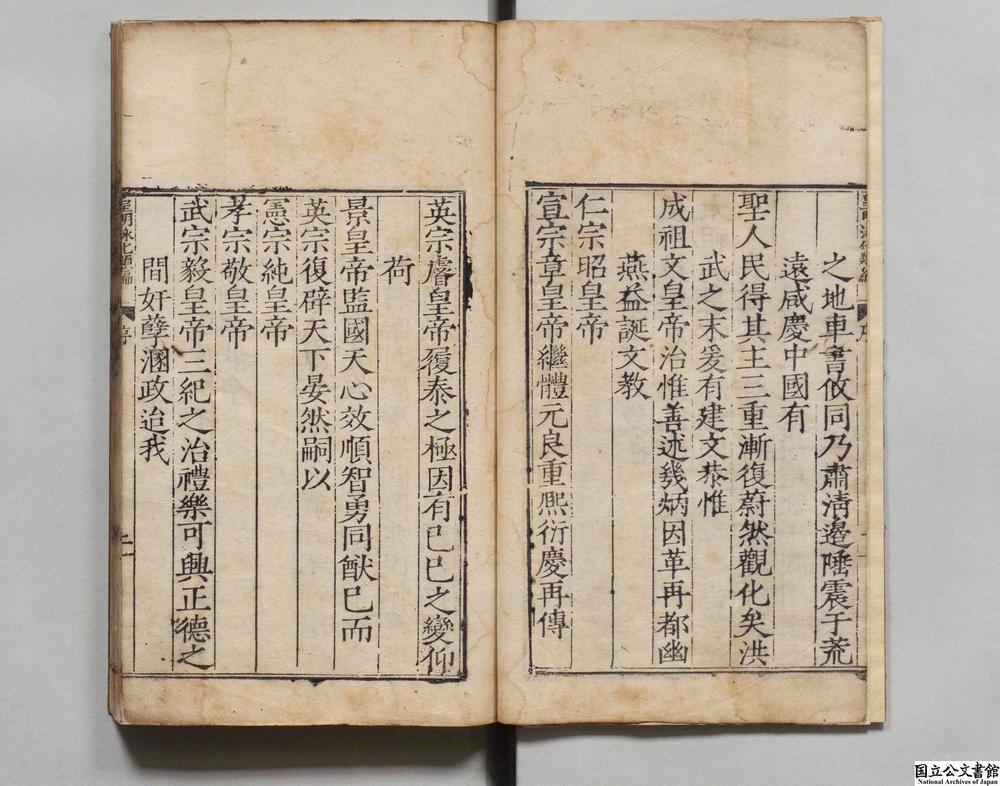 之地車書攸同乃肅清邊陲震于荒
遠咸慶中國有
聖人民得其主三重漸復蔚然觀化矣洪
武之末爰有建文恭惟
成祖文皇帝治惟善述幾炳因革再都幽
燕益誕文教
仁宗昭皇帝
宣宗章皇帝繼體元良重熙衍慶再傳
英宗睿皇帝履泰之極因有己巳之變仰
荷
景皇帝監國天心效順智勇同猷已而
英宗復辟天下晏然嗣以
憲宗純皇帝
孝宗敬皇帝
武宗毅皇帝三紀之治禮樂可興正德之
間奸孽溷政迨我
皇明泳化類編
序
二
国立公文書館
National Archives of Japan